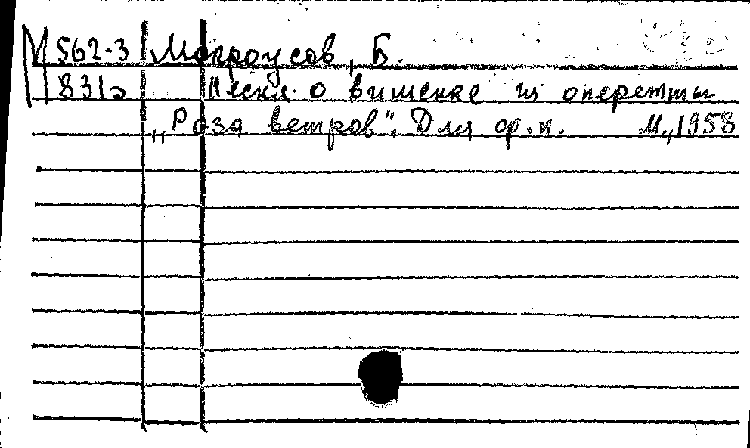 М562-3 Мокроусов, Б.
831 Песня о вишенке из оперетты
„Роза ветров". Для ф.п. М., 1958